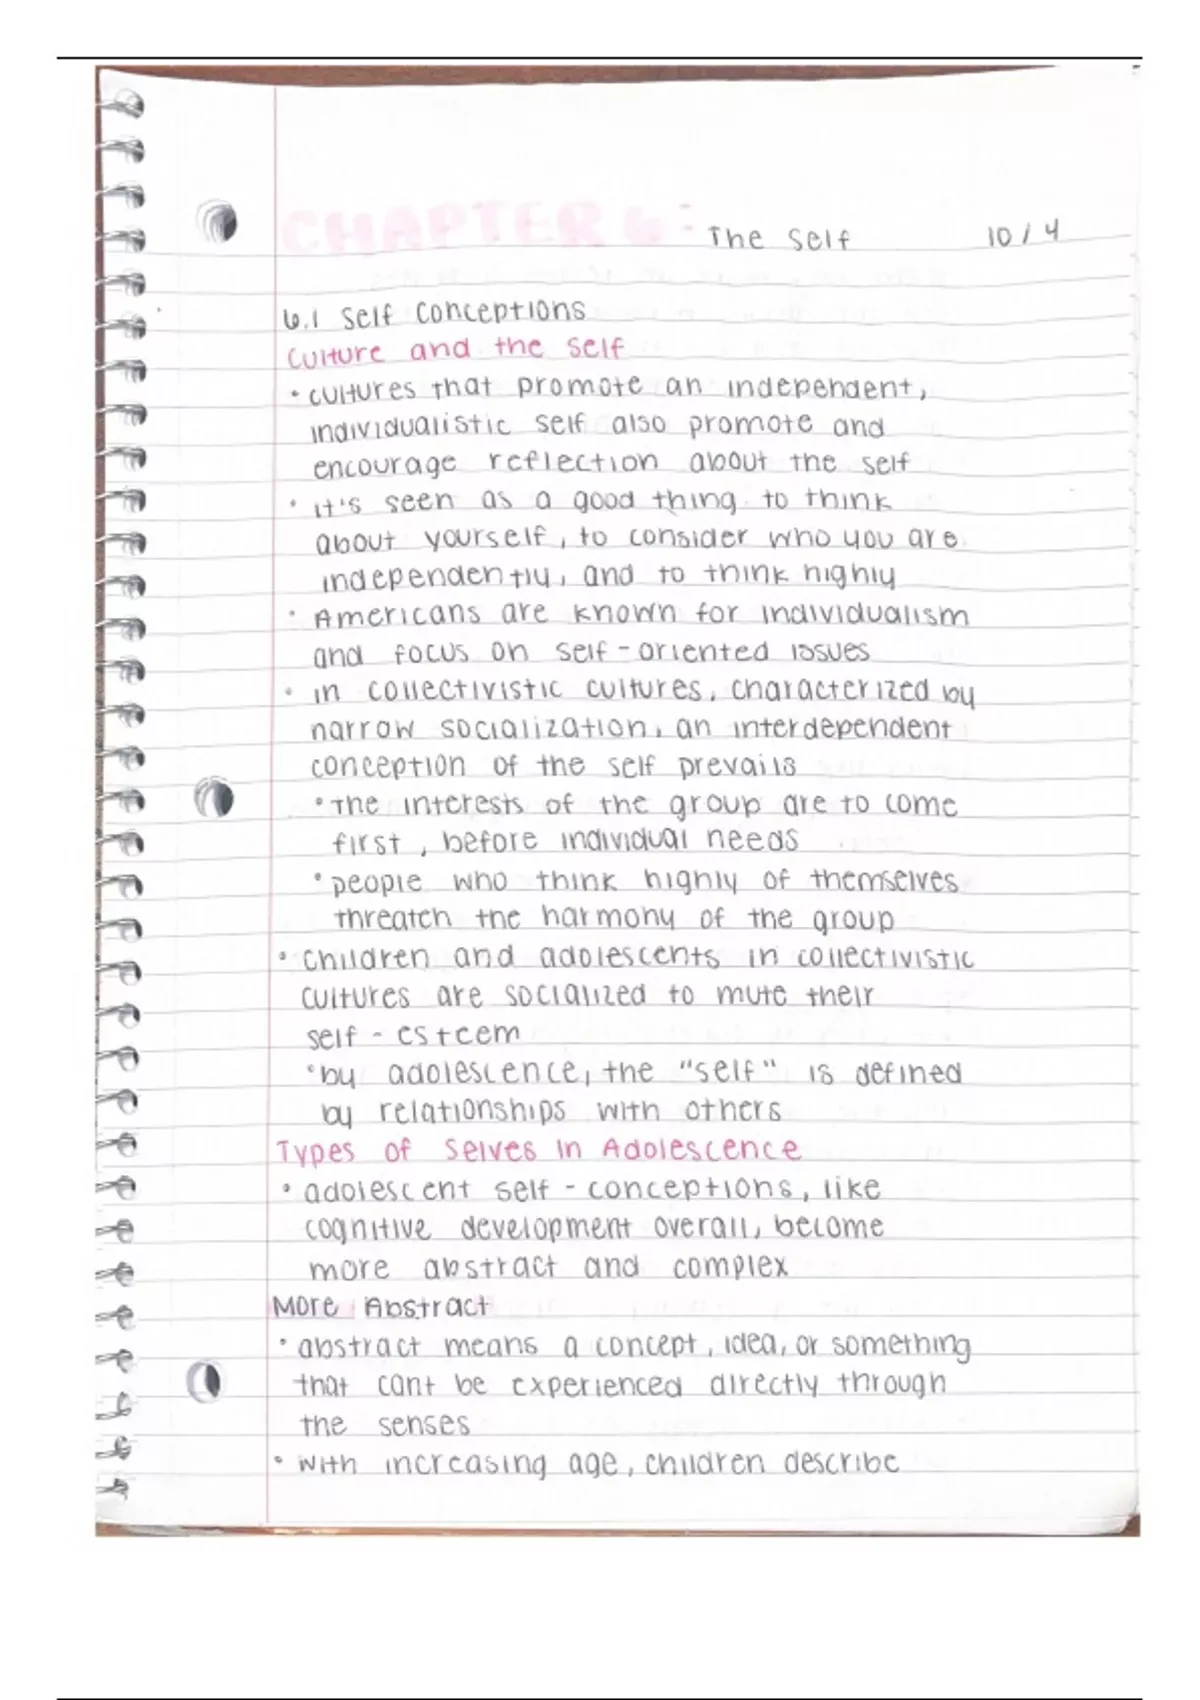 CHAPTER 6: The Self 10/4
6.1 Self Conceptions
Culture and the Self
• cultures that promote an independent,
individualistic self also promote and
encourage reflection about the self
• it's seen as a good thing to think
about yourself, to consider who you are
independently, and to think highly
• Americans are known for individualism
and focus on self-oriented issues
• in collectivistic cultures, characterized by
narrow socialization, an interdependent
conception of the self prevails
• the interests of the group are to come
first, before individual needs
• people who think highly of themselves
threaten the harmony of the group
• children and adolescents in collectivistic
cultures are socialized to mute their
self-esteem
• by adolescence, the "self" is defined
by relationships with others
Types of Selves in Adolescence
• adolescent self-conceptions, like
cognitive development overall, become
more abstract and complex
More Abstract
• abstract means a concept, idea, or something
that cant be experienced directly through
the senses
• with increasing age, children describe